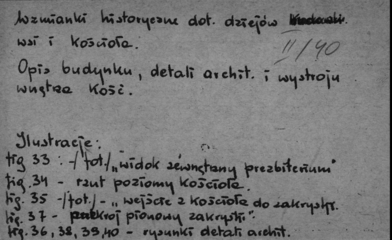 Wzmianki historyczne dot. dziejów
wsi i Kościoła.
II/40
Opis budynku, detali archit. i wystroju
wnętrza Kość.
Ilustracje:
fig 33 : -/fot/ „widok zewnętrzny prezbiterium"
fig. 34 - rzut poziomy Kościoła.
fig. 35 -/fot/- „wejście z Kościoła do zakrystii.
fig. 37 - przekrój pionowy zakrystii".
fig. 36, 38, 39, 40 - rysunki detali archit.